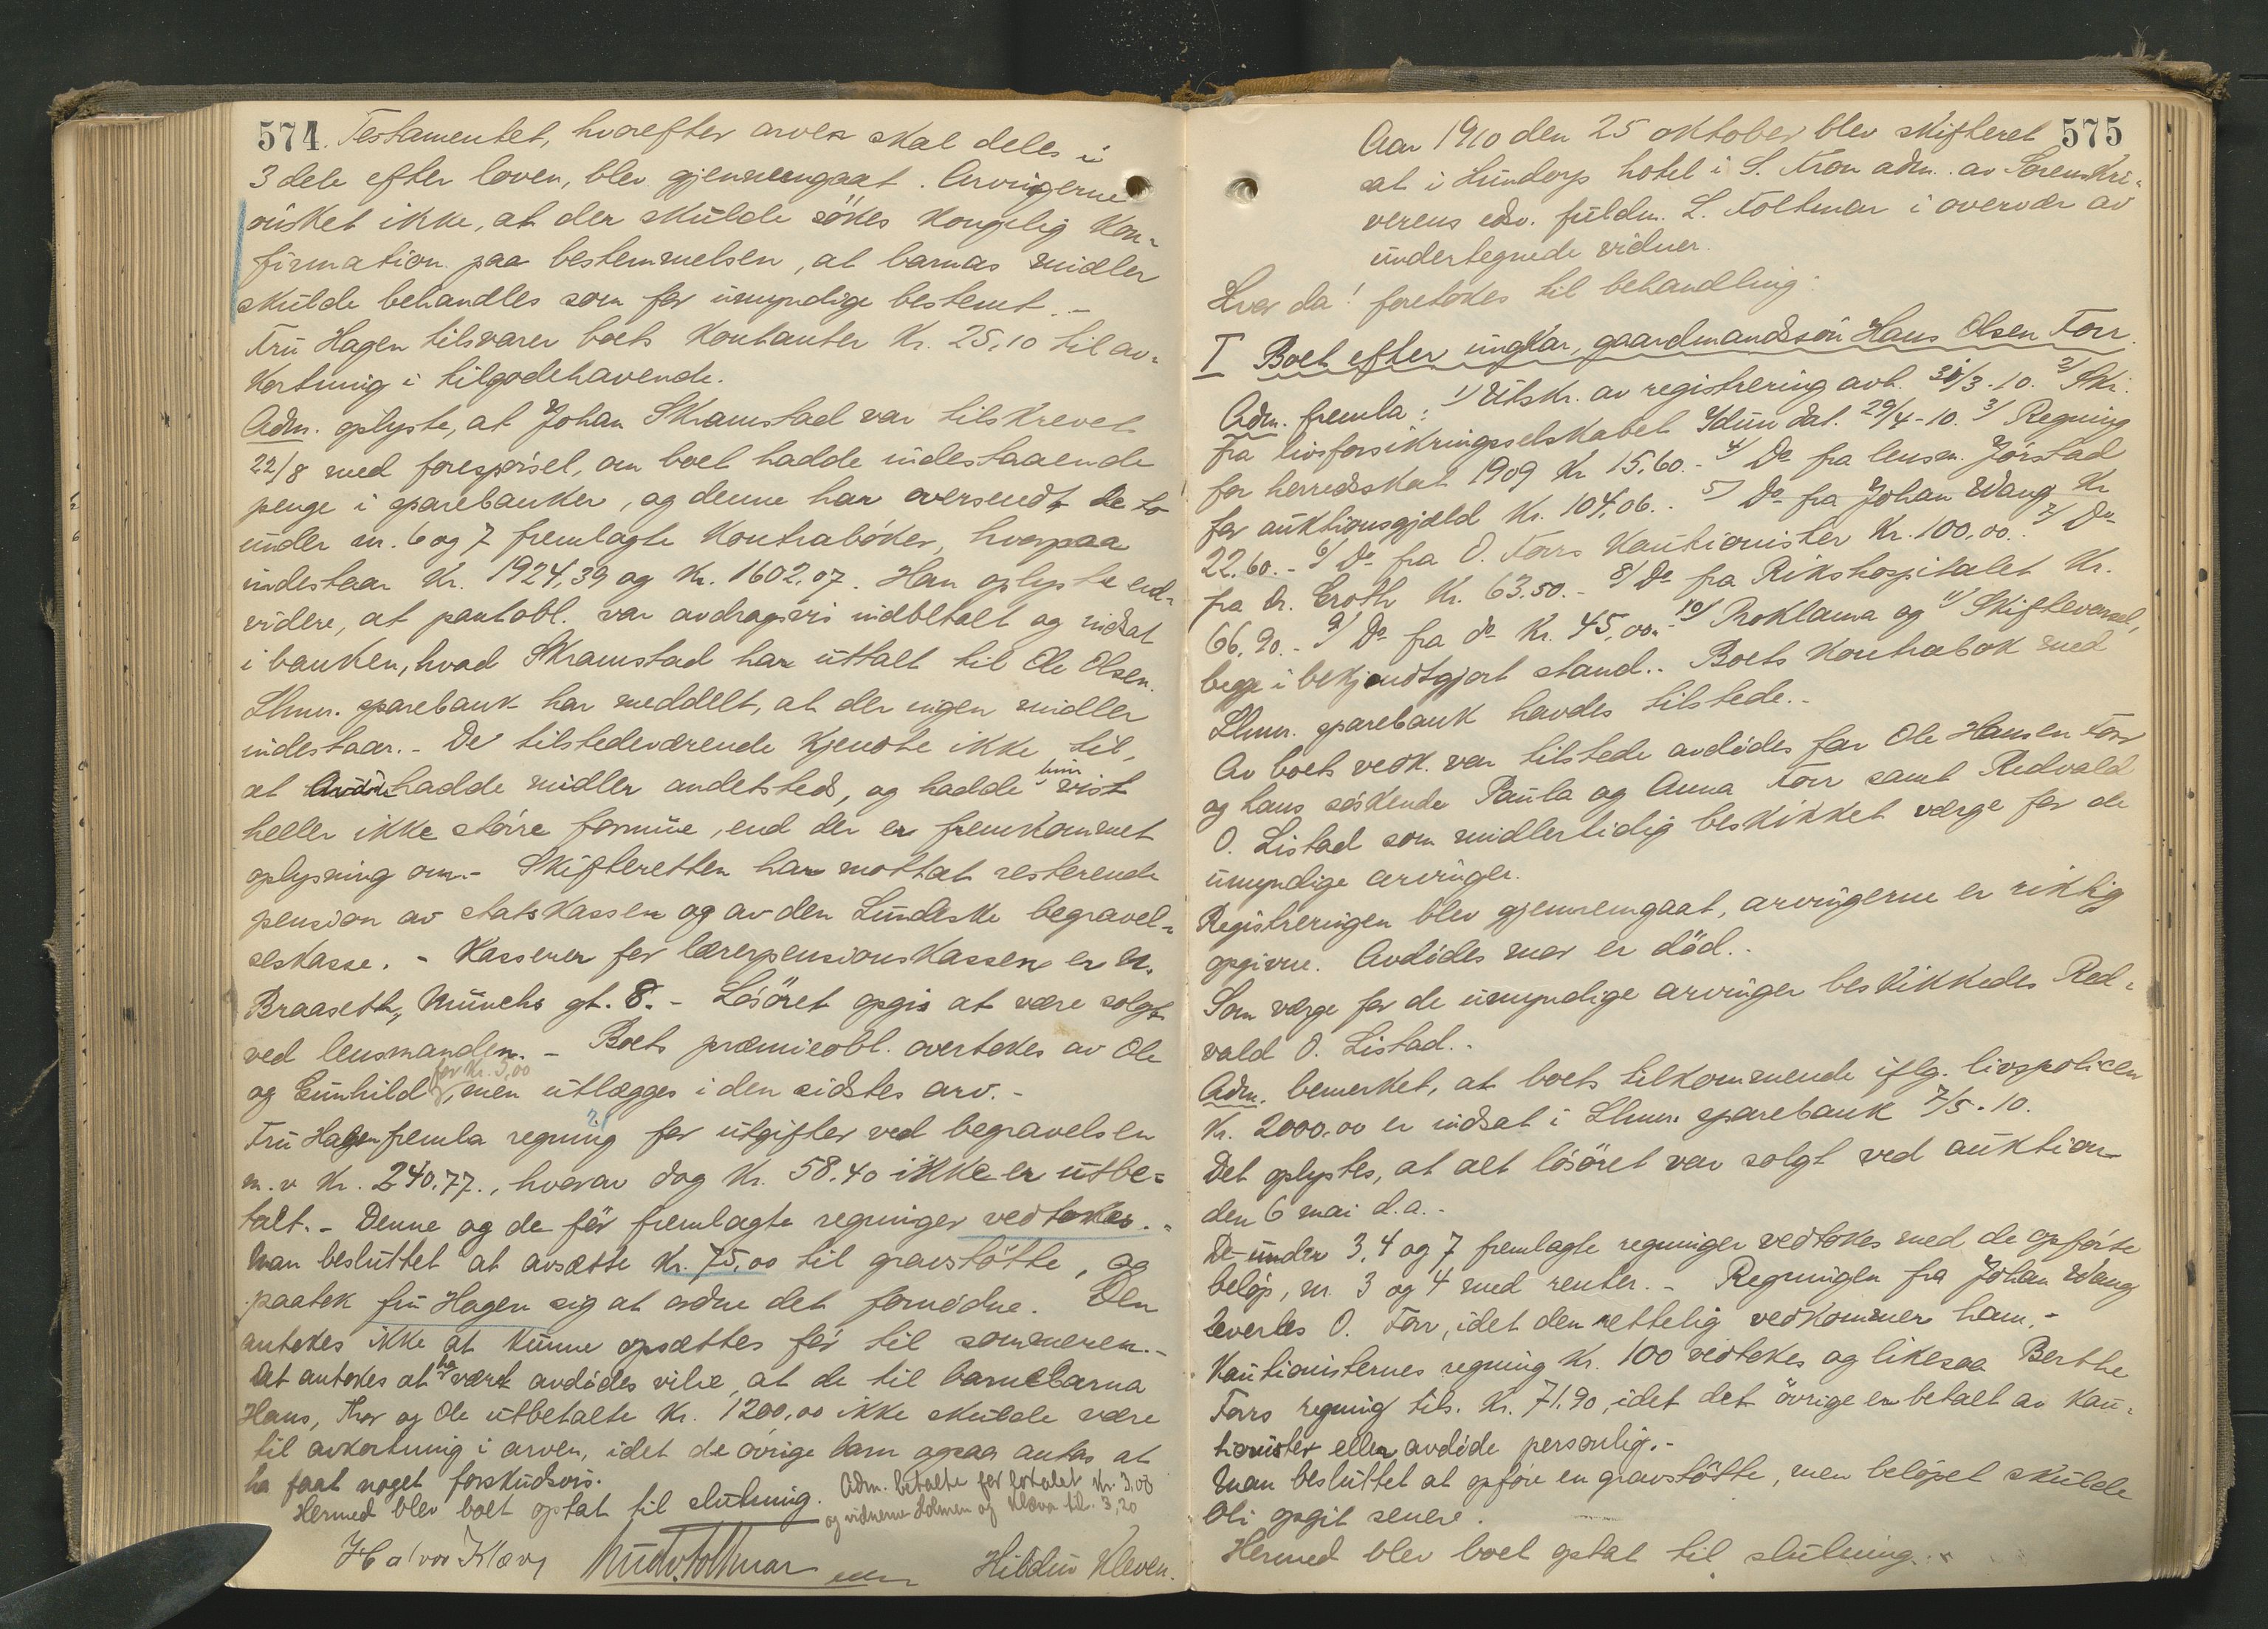 574. Testamentet, hvorefter arven skal deles i
3 dele efter loven, blev gjennemgaat. Arvingerne
ønsket ikke, at der skulde søkes kongelig kon-
firmation paa bestemmelsen, at barnas midler
skulde behandles som for umyndige bestemt. -
Fru Hagen tilsvarer boets kontanter Kr. 25,10 til av-
kortning i tilgodehavende.
Adm. oplyste, at Johan Skramstad var tilskrevet
22/8 med forespørsel, om boet hadde indestaaende
penge i sparebanker, og denne har oversendt de to
under nr. 6 og 7 fremlagte kontrabøker, hvorpaa
indestaar Kr. 1924,39 og Kr. 1602,07. Han oplyste end-
videre, at pantobl. var avdragsvis indbetalt og indsat
i banken, hvad Skramstad har uttalt til Ole Olsen.
Lhmr. sparebank har meddelt, at der ingen midler
indestaar. - De tilstedeværende kjendte ikke til,
at avdøde hadde midler andetsteds, og hadde hun vist
heller ikke større formue, end der er fremkommet
oplysning om. - Skifteretten har mottat resterende
pension av statskassen og av den Lundeske begravel-
seskasse. - Kasserer for lærerpensionskassen er N.
Braaseth, Munchs gt. 8. - Løsøret opgis at være solgt
ved lensmanden. - Boets præmieobl. overtokes av Ole
og Gunhild for Kr. 5,00, men utlægges i den sidstes arv. -
Fru Hagen fremla regning for utgifter ved begravelsen
m. v. Kr. 240,77., hvorav dog Kr. 58,40 ikke er utbe-
talt. - Denne og de før fremlagte regninger vedtokes. -
Man besluttet at avsætte Kr. 75,00 til gravstøtte, og
paatok fru Hagen sig at ordne det fornødne. Den
antokes ikke at kunne opsættes før til sommeren. -
Det antokes at ha vært avdødes vilje, at de til barnebarna
Hans, Thor og Ole utbetalte Kr. 1200,00 ikke skulde være
til avkortning i arven, idet de øvrige barn ogsaa antas at
ha faat noget forskudsvis.
Hermed blev boet optat til slutning. Adm. betalte for lokalet Kr. 3,00
og vidnerne Holmen og Klæva til. 3,20
Halvor Klæva Ludv. Toltmar Hildus Kleven.
575
Aar 1910 den 25 oktober blev skifteret
sat i Lundorps hotel i S. Fron adm. av Sorenskri-
verens edsv. fuldm. L. Toltmar i overvær av
undertegnede vidner.
Hvor da! foretokes til behandling:
I Boet efter ungkar, gaardmandssøn Hans Olsen Forr.
Adm. fremla: 1) Utskr. av registrering avh. 30/3-10. 2) Skr.
fra livsforsikringsselskabet Ydun dat. 29/4-10. 3) Regning
for herredsskat 1909 Kr 15,60. - 4) Do fra lensm. Jørstad
for auktionsgjæld Kr. 104,06. - 5) Do fra Johan Wang Kr
22,60. - 6) Do fra O. Forrs kautionister Kr. 100,00. - 7) Do
fra Dr. Groth Kr. 63,50. - 8) Do fra Rikshospitalet Kr.
66,90. - 9) Do fra do Kr. 45,00. - 10) Proklama og 11) Skiftevarsel,
begge i bekjendtgjort stand. - Boets kontrabok med
Lhmr. sparebank havdes tilstede. -
Av boets vedk. var tilstede avdødes far Ole Hansen Forr
og hans søskende Paula og Anna Forr samt Redvald
O. Listad som midlertidig beskikket værge for de
umyndige arvinger.
Registreringen blev gjennemgaat, arvingerne er riktig
opgivne. Avdødes mor er død. -
Som værge for de umyndige arvinger beskikkedes Red-
vald O. Listad. -
Adm. bemerket, at boets tilkommende iflg. livspolicen
Kr. 2000,00 er indsat i Lhmr. sparebank 7/5-10.
Det oplystes, at alt løsøret var solgt ved auktion
den 6 mai d. a. -
De under 3, 4 og 7 fremlagte regninger vedtokes med de opførte
beløp, nr. 3 og 4 med renter. - Regningen fra Johan Wang
leverles O. Forr, idet den rettelig vedkommer ham. -
Kautionisternes regning Kr. 100 vedtokes og likesaa Berthe
Forrs regning tils. Kr. 71,90, idet det øvrige er betalt av kau-
tionister eller avdøde personlig. -
Man besluttet at opføre en gravstøtte, men beløpet skulde
bli opgit senere.
Hermed blev boet optat til slutning. -